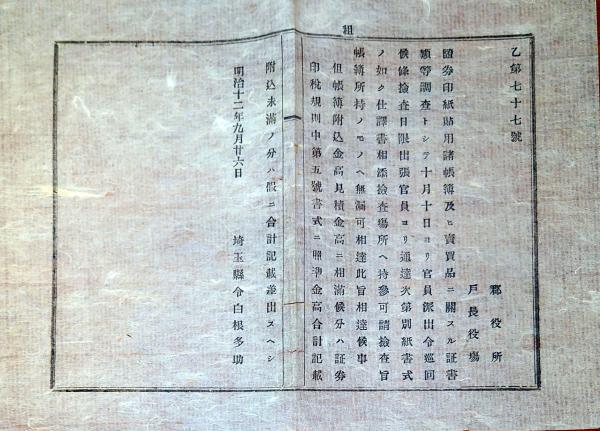 組
乙第七十七號
郡役所
戸長役場
證券印紙貼用諸帳簿及ヒ賣買品ニ關スル証書
類等調査トシテ十月十日ヨリ官員派出令巡回
候條撿査日限出張官員ヨリ通達次第別紙書式
ノ如ク仕譯書相添撿査塲所ヘ持參可請撿査旨
帳簿所持ノモノヘ無漏可相達此旨相達候事
但帳簿附込金高見積金高ニ相滿候分ハ証券
印稅規則中第五號書式ニ照準金高合計記載
附込未滿ノ分ハ假ニ合計記載差出スヘシ
明治十二年九月廿六日
埼玉縣令白根多助